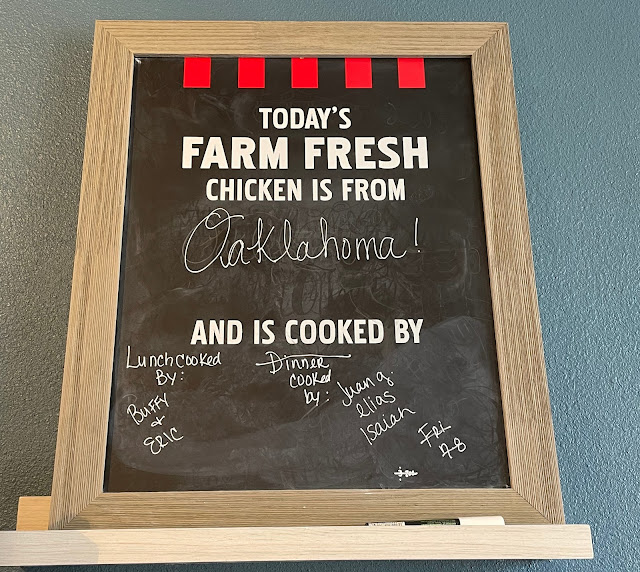 TODAY'S
FARM FRESH
CHICKEN IS FROM
Oaklahoma!
AND IS COOKED BY
Lunch cooked
By:
Buffy
&
Eric
Dinner
cooked
by:
Juan g.
elias
Isaiah
Fri
7-8